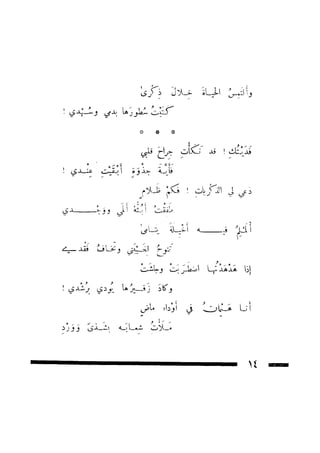 وألتمِسُ الحيـاةَ خِـلالَ ذِكْرى
كتَبْتُ سُطورَها بدمي وسُـهدي !
* * *
فَدَيْتُكِ ! قد نَكأْتِ جِراحَ قلبي
فَأَيَّـةَ جذْوَةٍ أَبْقَيْتِ عِنْـدي !
دَعي لي الذكْرياتِ ! فكمْ ظَـلامٍ
أَبُثُّهُ أَلَمي ووَجْـــــدي
أُلَمْلِمُ فيـــــه أَخْيِلَةً يتـامى
تنوحُ وتخـافُ فَقْدي
إذا هَدْهَدْتُها اضطَرَبَتْ وجاشَتْ
وكادَ زَفـيرُها يُودي بِرُشْدي !
أنـا هَيْمَانُ في أوْداءِ ماضٍ
مَـلأْتُ شِعابَـه بِشَـذىً وَوَرْدِ
١٤